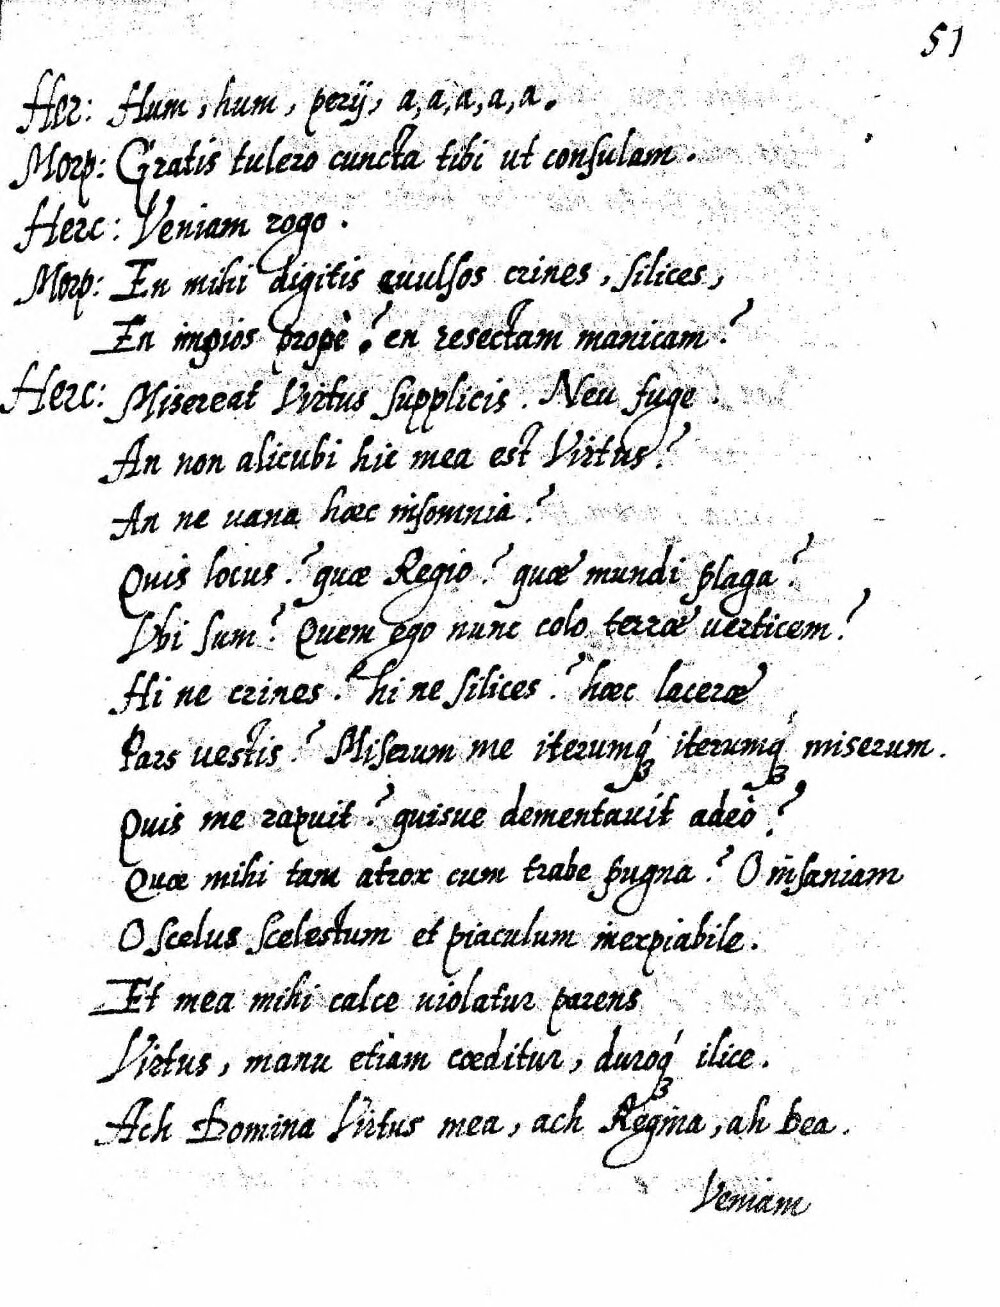 51
Her: Hum, hum, perij, a, a, a, a, a.
Morp: Gratis tulero cuncta tibi ut consulam.
Herc: Veniam rogo.
Morp: En mihi digitis auulsos crines, silices,
En impios propè? en resectam manicam?
Herc: Misereat Virtus supplicis. Neu fuge.
An non alicubi hic mea est Virtus?
An ne uana hæc insomnia?
Quis locus? quæ Regio? quæ mundi plaga?
Vbi sum? Quem ego nunc colo terræ uerticem?
Hi ne crines? hi ne silices? hæc laceræ
Pars uestis? Miserum me iterumqꝫ iterumqꝫ miserum.
Quis me rapuit? quisue dementauit adeò?
Quæ mihi tam atrox cum trabe pugna? O insaniam
O scelus scelestum et piaculum inexpiabile.
Et mea mihi calce uiolatur parens
Virtus, manu etiam cæditur, duroqꝫ ilice.
Ach Domina Virtus mea, ach Regina, ah Dea.
Veniam